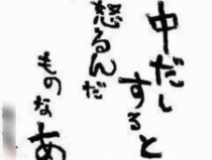 中だし
すると
怒るんだ
ものなあ